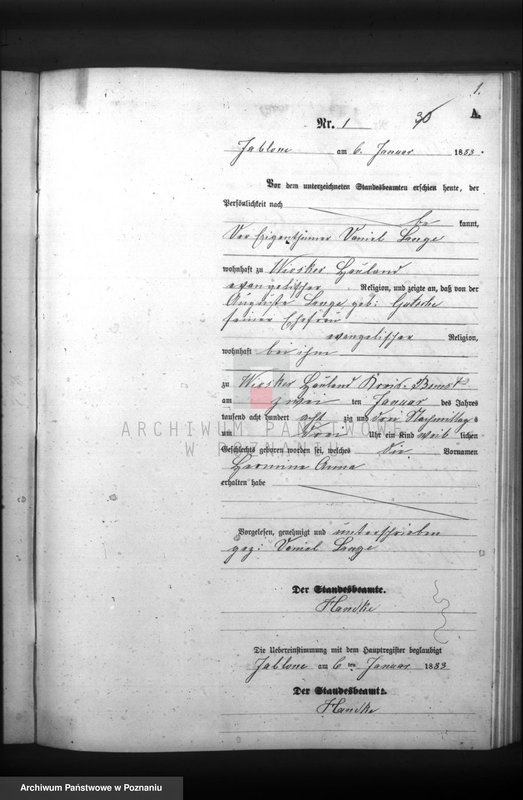 1.
A.
Nr. 1
Jablone am 6. Januar 1883.
Vor dem unterzeichneten Standesbeamten erschien heute, der
Persönlichkeit nach
be kannt,
der Eigenthümer Daniel Lange
wohnhaft zu Wiosker Hauland
evangelischer Religion, und zeigte an, daß von der
Auguste Lange geb:
seiner Ehefrau
evangelischer Religion,
wohnhaft bei ihm
zu Wiosker Hauland Kreis Bomst
am zwei ten Januar des Jahres
tausend acht hundert acht zig und drei Nachmittag s
um drei Uhr ein Kind weib lichen
Geschlechts geboren worden sei, welches die Vornamen
Hermine Anna
erhalten habe
Vorgelesen, genehmigt und unterschrieben
gez: Daniel Lange
Der Standesbeamte.
Handke
Die Uebereinstimmung mit dem Hauptregister beglaubigt
Jablone am 6ten Januar 1883
Der Standesbeamte.
Handke
ARCHIWUM PAŃSTWOWE
W POZNANIU
Archiwum Państwowe w Poznaniu